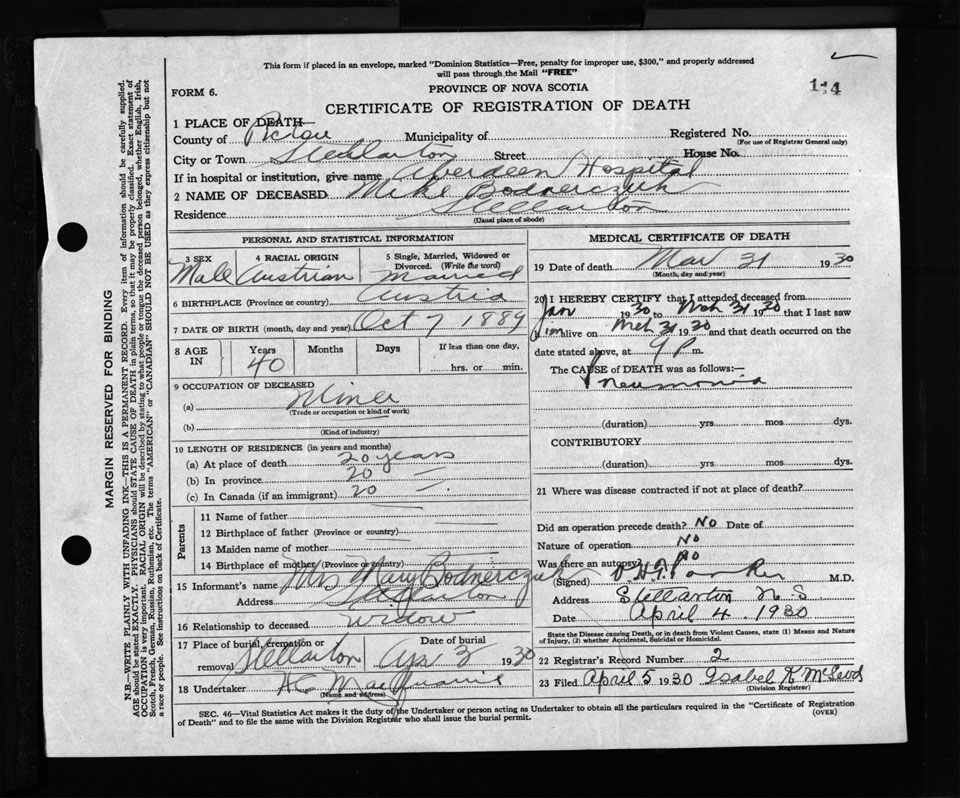 This form if placed in an envelope, marked "Dominion Statistics—Free, penalty for improper use, $300," and properly addressed
will pass through the Mail "FREE"
FORM 6.
PROVINCE OF NOVA SCOTIA
114
CERTIFICATE OF REGISTRATION OF DEATH
1 PLACE OF DEATH
County of Pictou Municipality of Registered No. (For use of Registrar General only)
City or Town Stellarton Street House No.
If in hospital or institution, give name Aberdeen Hospital
2 NAME OF DECEASED Mike Bodnerczuk
Residence Stellarton
(Usual place of abode)
PERSONAL AND STATISTICAL INFORMATION
3 SEX 4 RACIAL ORIGIN 5 Single, Married, Widowed or Divorced. (Write the word)
Male Austrian Married
6 BIRTHPLACE (Province or country) Austria
7 DATE OF BIRTH (month, day and year) Oct 7 1889
8 AGE IN Years Months Days If less than one day,
40 hrs. or min.
9 OCCUPATION OF DECEASED
(a) Miner
(Trade or occupation or kind of work)
(b)
(Kind of industry)
10 LENGTH OF RESIDENCE (in years and months)
(a) At place of death 20 years
(b) In province 20 —
(c) In Canada (if an immigrant) 20 —
Parents
11 Name of father
12 Birthplace of father (Province or country)
13 Maiden name of mother
14 Birthplace of mother (Province or country)
15 Informant's name Mrs Mary Bodnerczuk
Address Stellarton
16 Relationship to deceased widow
17 Place of burial, cremation or Date of burial
removal Stellarton Apr 3 1930
18 Undertaker
(Name and address)
MEDICAL CERTIFICATE OF DEATH
19 Date of death Mar 31 1930
(Month, day and year)
20 I HEREBY CERTIFY that I attended deceased from
Jan 1930 to Mch 31 1930 that I last saw
him alive on Mch 31 1930 and that death occurred on the
date stated above, at 9 P m.
The CAUSE of DEATH was as follows:—
Pneumonia
(duration) yrs mos dys.
CONTRIBUTORY
(duration) yrs mos dys.
21 Where was disease contracted if not at place of death?
Did an operation precede death? No Date of
Nature of operation No
Was there an autopsy? No
(Signed) Parker M.D.
Address Stellarton N S
Date April 4 1930
State the Disease causing Death, or in death from Violent Causes, state (1) Means and Nature
of Injury, (2) whether Accidental, Suicidal or Homicidal.
22 Registrar's Record Number 2
23 Filed April 5 1930 Isabel K McLeod
(Division Registrar)
SEC. 46—Vital Statistics Act makes it the duty of the Undertaker or person acting as Undertaker to obtain all the particulars required in the "Certificate of Registration
of Death" and to file the same with the Division Registrar who shall issue the burial permit.
(OVER)
MARGIN RESERVED FOR BINDING
N.B.—WRITE PLAINLY WITH UNFADING INK—THIS IS A PERMANENT RECORD. Every item of information should be carefully supplied.
AGE should be stated EXACTLY. PHYSICIANS should STATE CAUSE OF DEATH in plain terms, so that it may be properly classified. Exact statement of
OCCUPATION is very important. RACIAL ORIGIN will be described by stating to what people or tongue the deceased person belonged, whether English, Irish,
Scotch, French, German, Russian, Ruthenian, etc. The terms "AMERICAN" or "CANADIAN" SHOULD NOT BE USED as they express citizenship but not
a race or people. See instructions on back of Certificate.